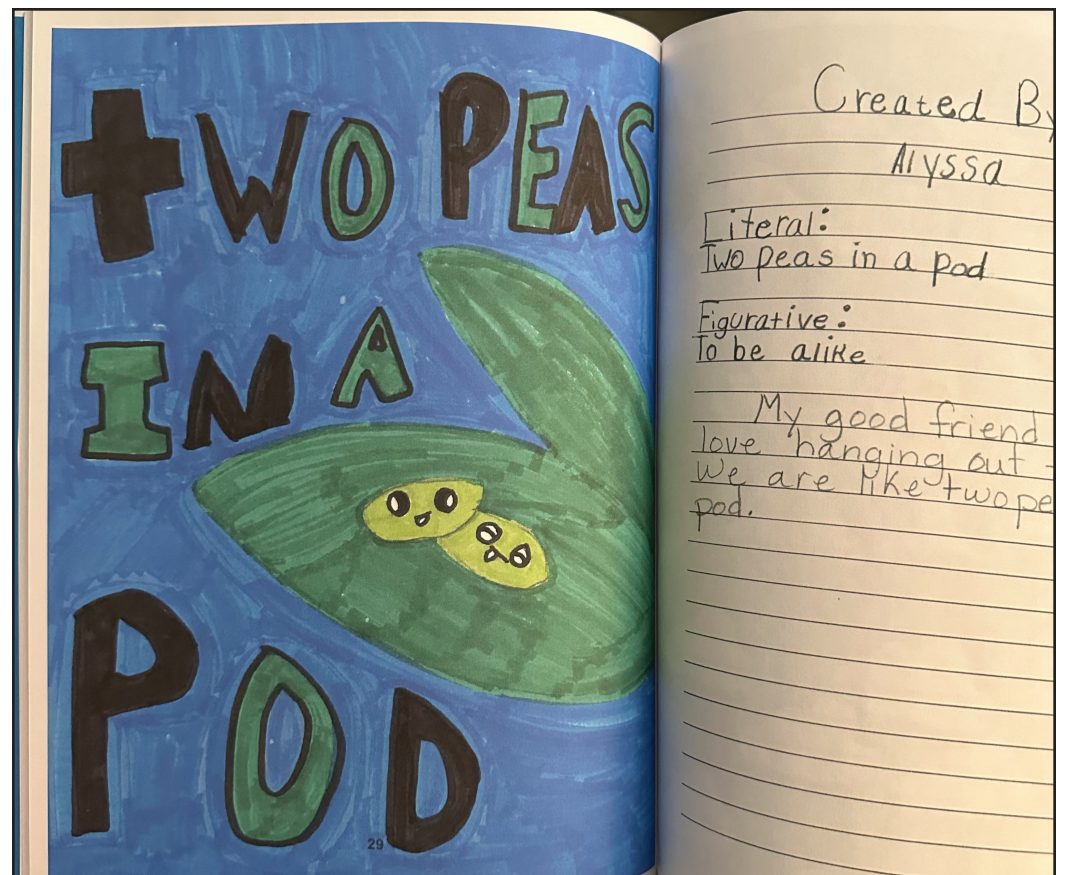 tWO PEAS
IN A
POD
29
Created By
Alyssa
Literal:
Two peas in a pod
Figurative:
To be alike
My good friend
love hanging out
We are like two pe
pod.